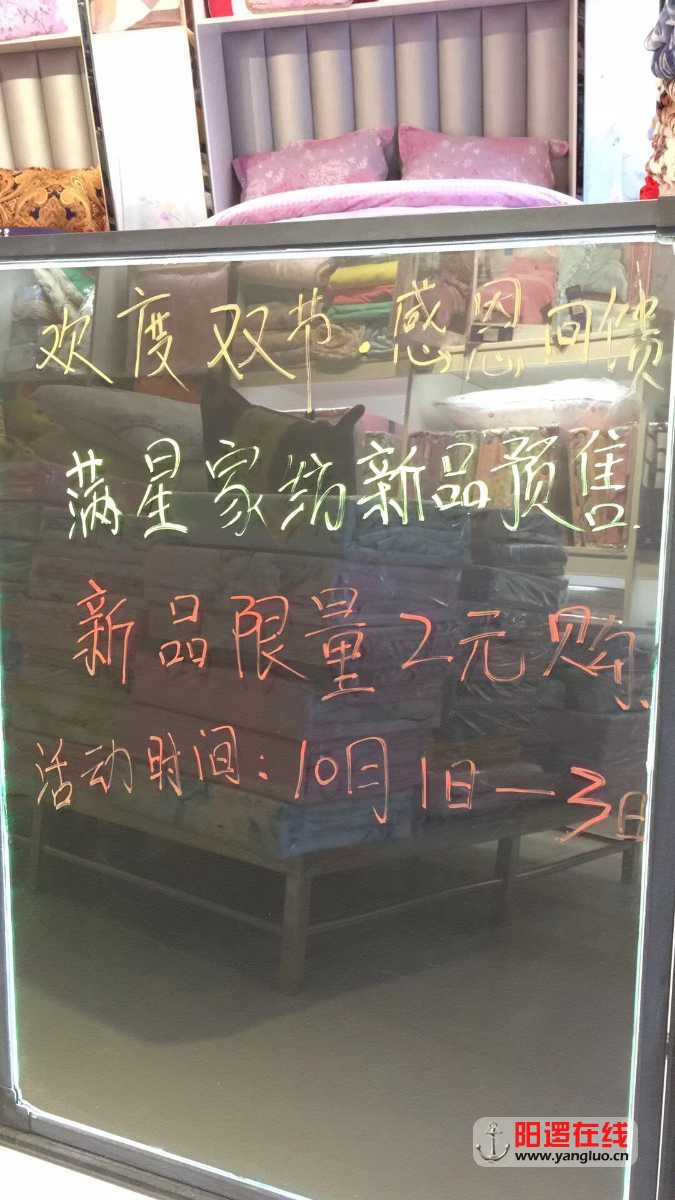 欢度双节·感恩回馈
满星家纺新品预售
新品限量2元购
活动时间：10月1日—3日
阳逻在线
www.yangluo.cn